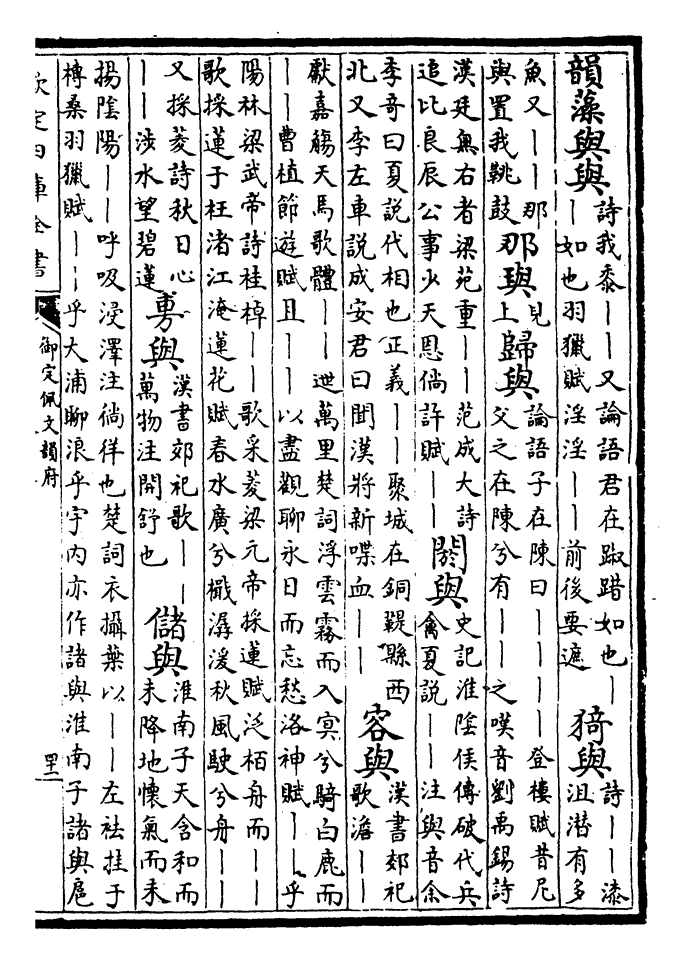 韻藻與與詩我黍｜｜又論語君在踧踖如也｜
｜如也羽獵賦淫淫｜｜前後要遮猗與詩｜｜漆
沮潜有多
魚又｜｜那
與置我鞉鼓那與見
上歸與論語子在陳曰｜｜｜｜登樓賦昔尼
父之在陳兮有｜｜之嘆音劉禹錫詩
漢廷無右者梁苑重｜｜范成大詩
追比良辰公事少天恩倘許賦｜｜閼與史記淮隂侯傳破代兵
禽夏説｜｜注與音余
季奇曰夏説代相也正義｜｜聚城在銅鞮縣西
北又李左車説成安君曰聞漢將新喋血｜｜容與漢書郊祀
歌澹｜｜
獻嘉觴天馬歌體｜｜迣萬里楚詞浮雲霧而入冥兮騎白鹿而
｜｜曹植節遊賦且｜｜以盡觀聊永日而忘愁洛神賦｜｜乎
陽林梁武帝詩桂棹｜｜歌采菱梁元帝採蓮賦泛栢舟而｜｜
歌採蓮于枉渚江淹蓮花賦春水廣兮檝潺湲秋風駛兮舟｜｜
又採菱詩秋日心
｜｜涉水望碧蓮旉與漢書郊祀歌｜｜
萬物注開舒也儲與淮南子天含和而
未降地懷氣而未
揚隂陽｜｜呼吸浸澤注倘佯也楚詞衣攝葉以｜｜左袪挂于
榑桑羽獵賦｜｜乎大浦聊浪乎宇内亦作諸與淮南子諸與扈
欽定四庫全書
御定佩文韻府